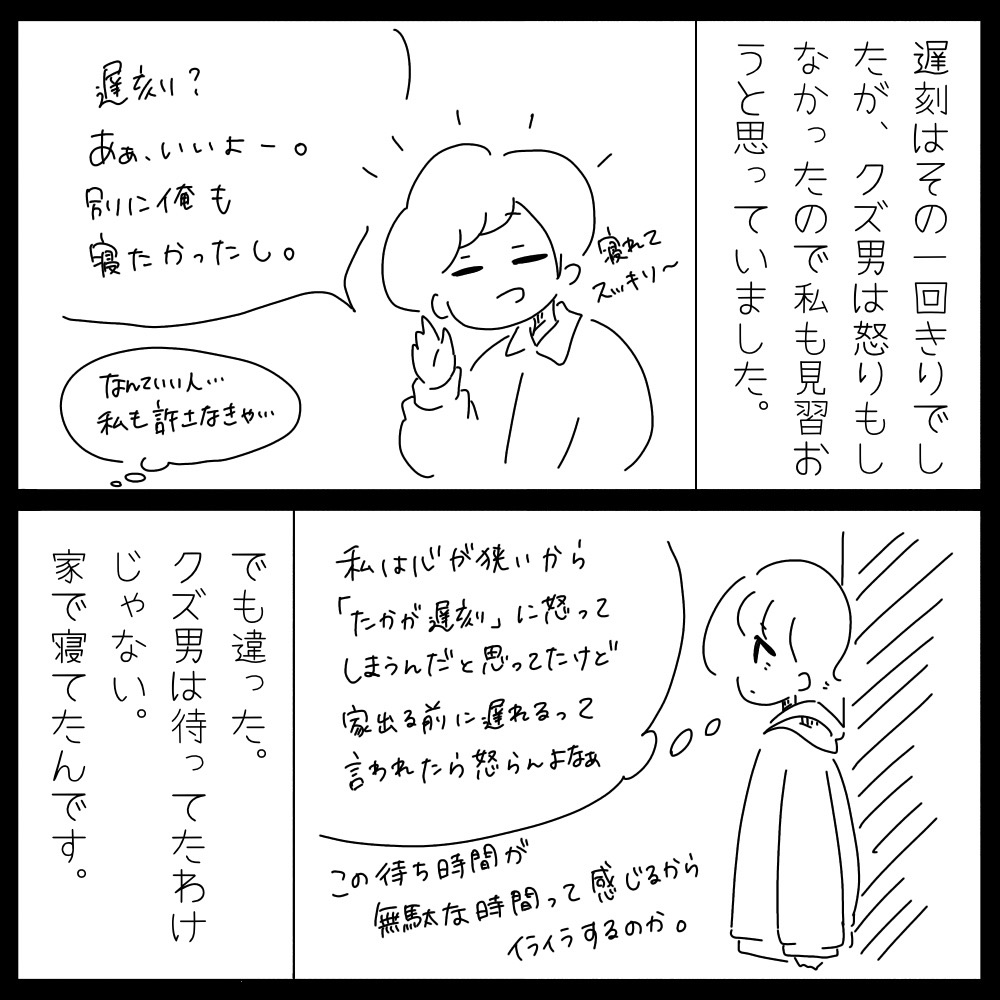 遅刻はその一回きりでし
たが、クズ男は怒りもし
なかったので私も見習お
うと思っていました。
遅刻？
あぁ、いいよー。
別に俺も
寝たかったし。
寝れて
スッキリ〜
なんていい人…
私も許さなきゃ…
私は心が狭いから
「たかが遅刻」に怒って
しまうんだと思ってたけど
家出る前に遅れるって
言われたら怒らんよなぁ
この待ち時間が
無駄な時間って感じるから
イライラするのか。
でも違った。
クズ男は待ってたわけ
じゃない。
家で寝てたんです。